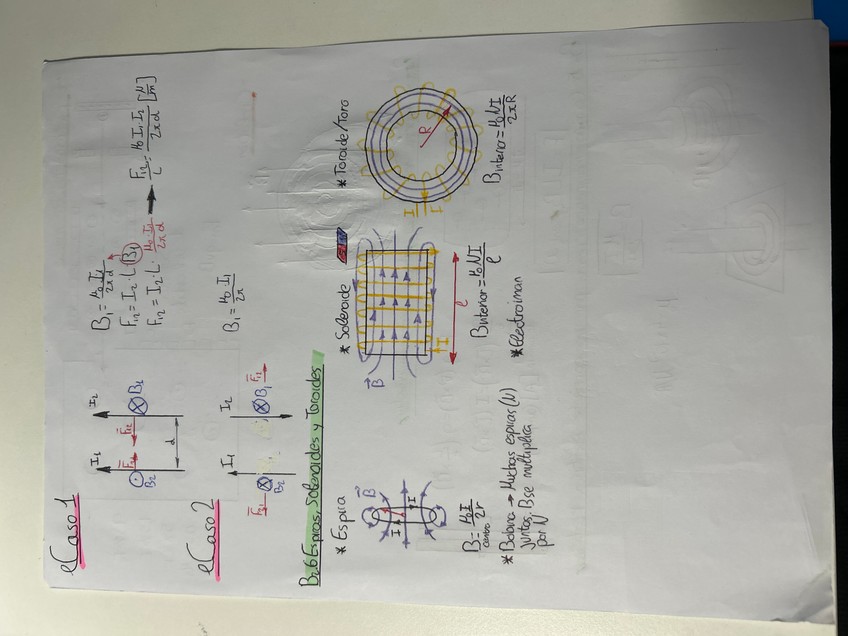 Caso 1
I₁ I₂
F₂₁ F₁₂
B₂ B₁
d
B₁ = μ₀·I₁/2πd
F₁₂ = I₂·L·B₁
F₁₂ = I₂·L·μ₀·I₁/2πd → F₁₂/L = μ₀·I₁·I₂/2πd [N/m]
Caso 2
I₁ I₂
F₂₁ B₂ B₁ F₁₂
B₁ = μ₀·I₁/2π
B2.6 Espiras, Solenoides y Toroides
* Espira
B
I I
B centro = μ₀I/2r
* Bobina → Muchas espiras (N)
juntas. B se multiplica
por N
* Solenoide
B
I
l
B interior = μ₀NI/l
* Electroiman
* Toroide/Toro
R
I
I
B interior = μ₀NI/2πR